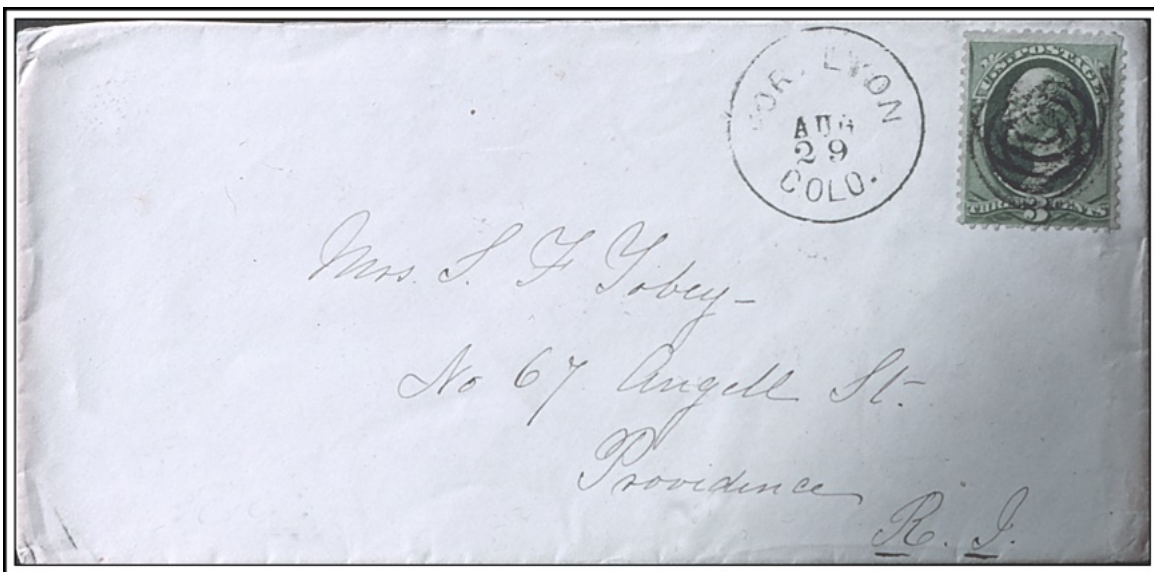 FORT LYON
AUG
29
COLO.
U.S. POSTAGE
THREE 3 CENTS
Mrs. S. F Tobey-
No 67 Angell St.
Providence
R. I.